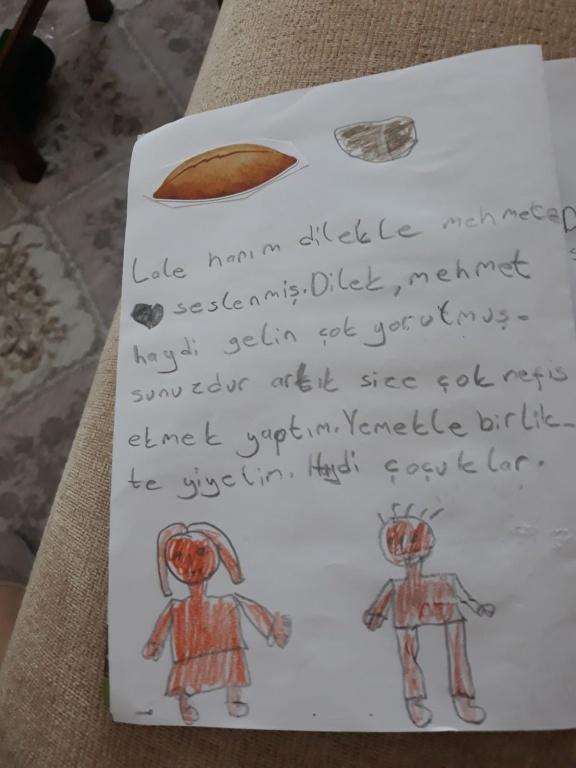 Lale hanım dilekle mehmete
seslenmiş. Dilek, mehmet
haydi gelin çok yorulmuş-
sunuzdur artık sice çok nefis
ekmek yaptım. Yemekle birlik-
te yiyelin. Haydi çoçuklar.